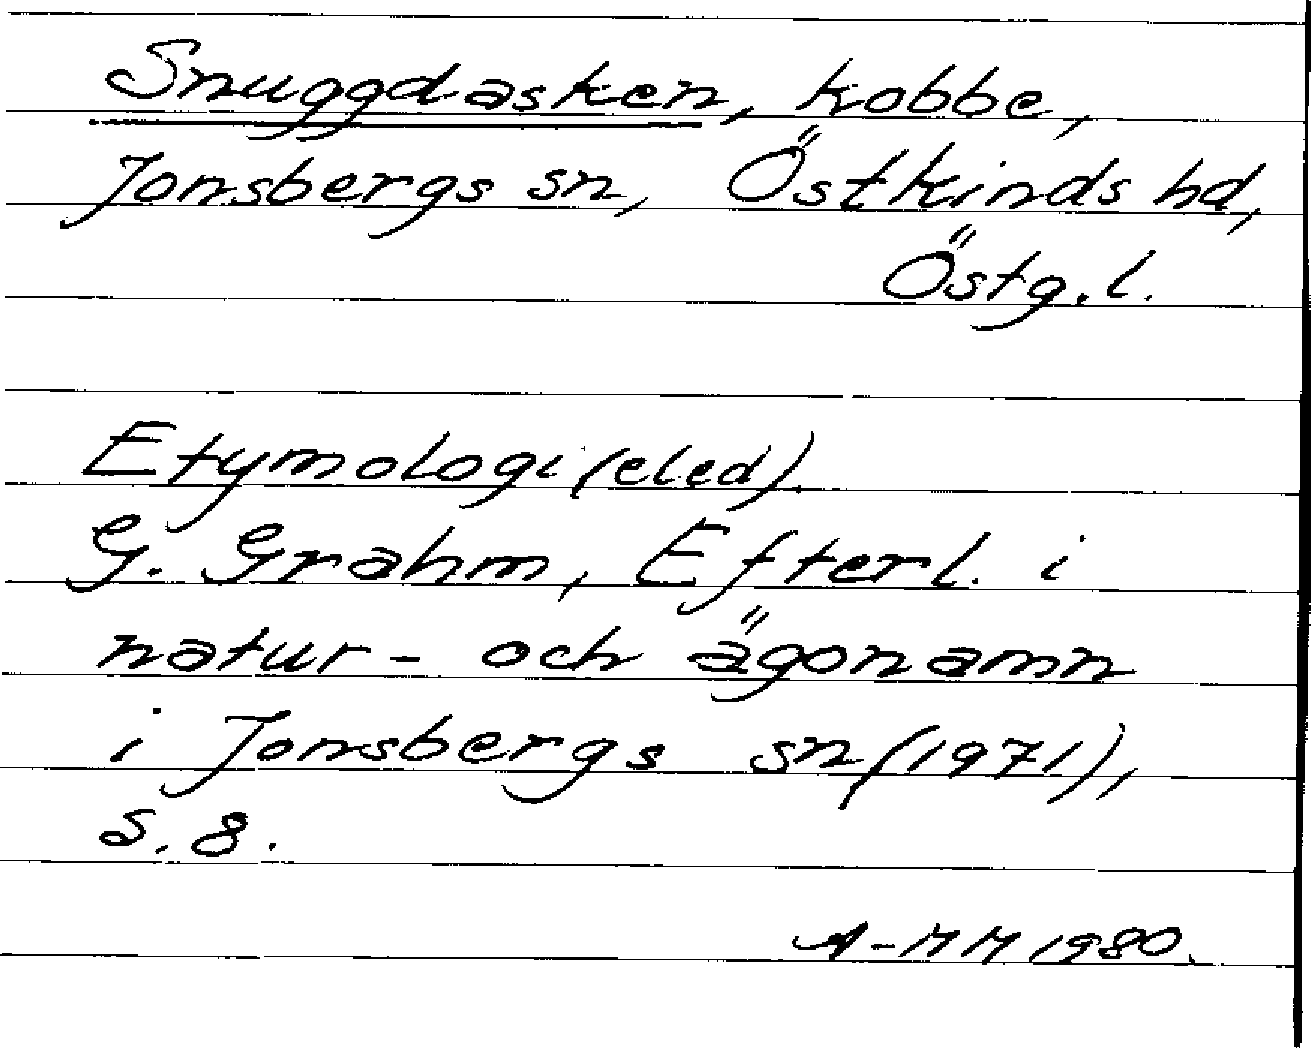 Snuggdasken, kobbe,
Jonsbergs sn, Östkinds hd,
Östg.l.
Etymologi (eled).
G. Grahm, Efterl. i
natur- och ägonamn
i Jonsbergs sn (1971),
s. 8.
A-MM 1980.